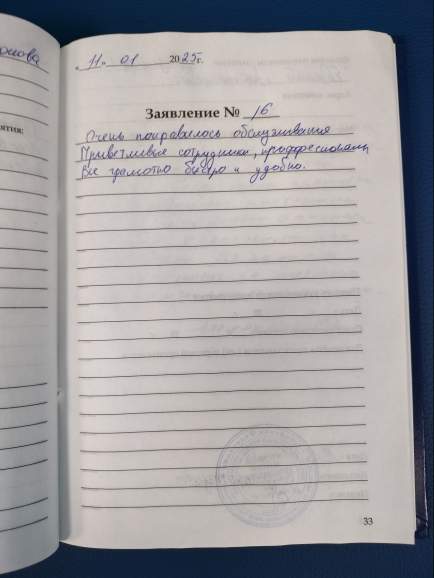 «11» 01 2025г.
Заявление № 16
Очень понравилось обслуживания
Приветливые сотрудники, проффесионалы
Все грамотно быстро и удобно.
33